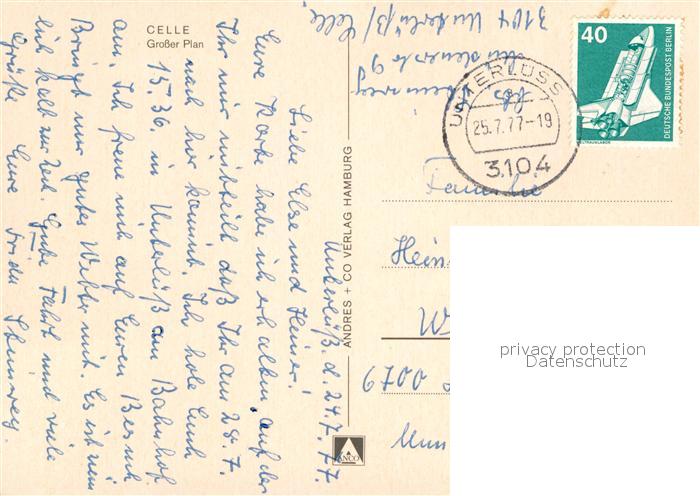 CELLE
Großer Plan
Unterlüß, d. 24.7.77.
Liebe Else und Heiner!
Eure Karte habe ich erhalten, auf der
Ihr mir mitteilt daß Ihr am 28.7.
nach hier kommt. Ich hole Euch
15.36. in Unterlüß am Bahnhof
ab. Ich freue mich auf Euren Besuch
Bringt nur gutes Wetter mit. Es ist
lich kalt zur Zeit. Gute Fahrt und viele
Grüße Eure Frida
ANDRES + CO VERLAG HAMBURG
ANCO
3104 Unterlüß/Celle
UNTERLÜSS
25.7.77-19
3104
40
DEUTSCHE BUNDESPOST BERLIN
WELTRAUMLABOR
Familie
Hein
W
privacy protection
Datenschutz